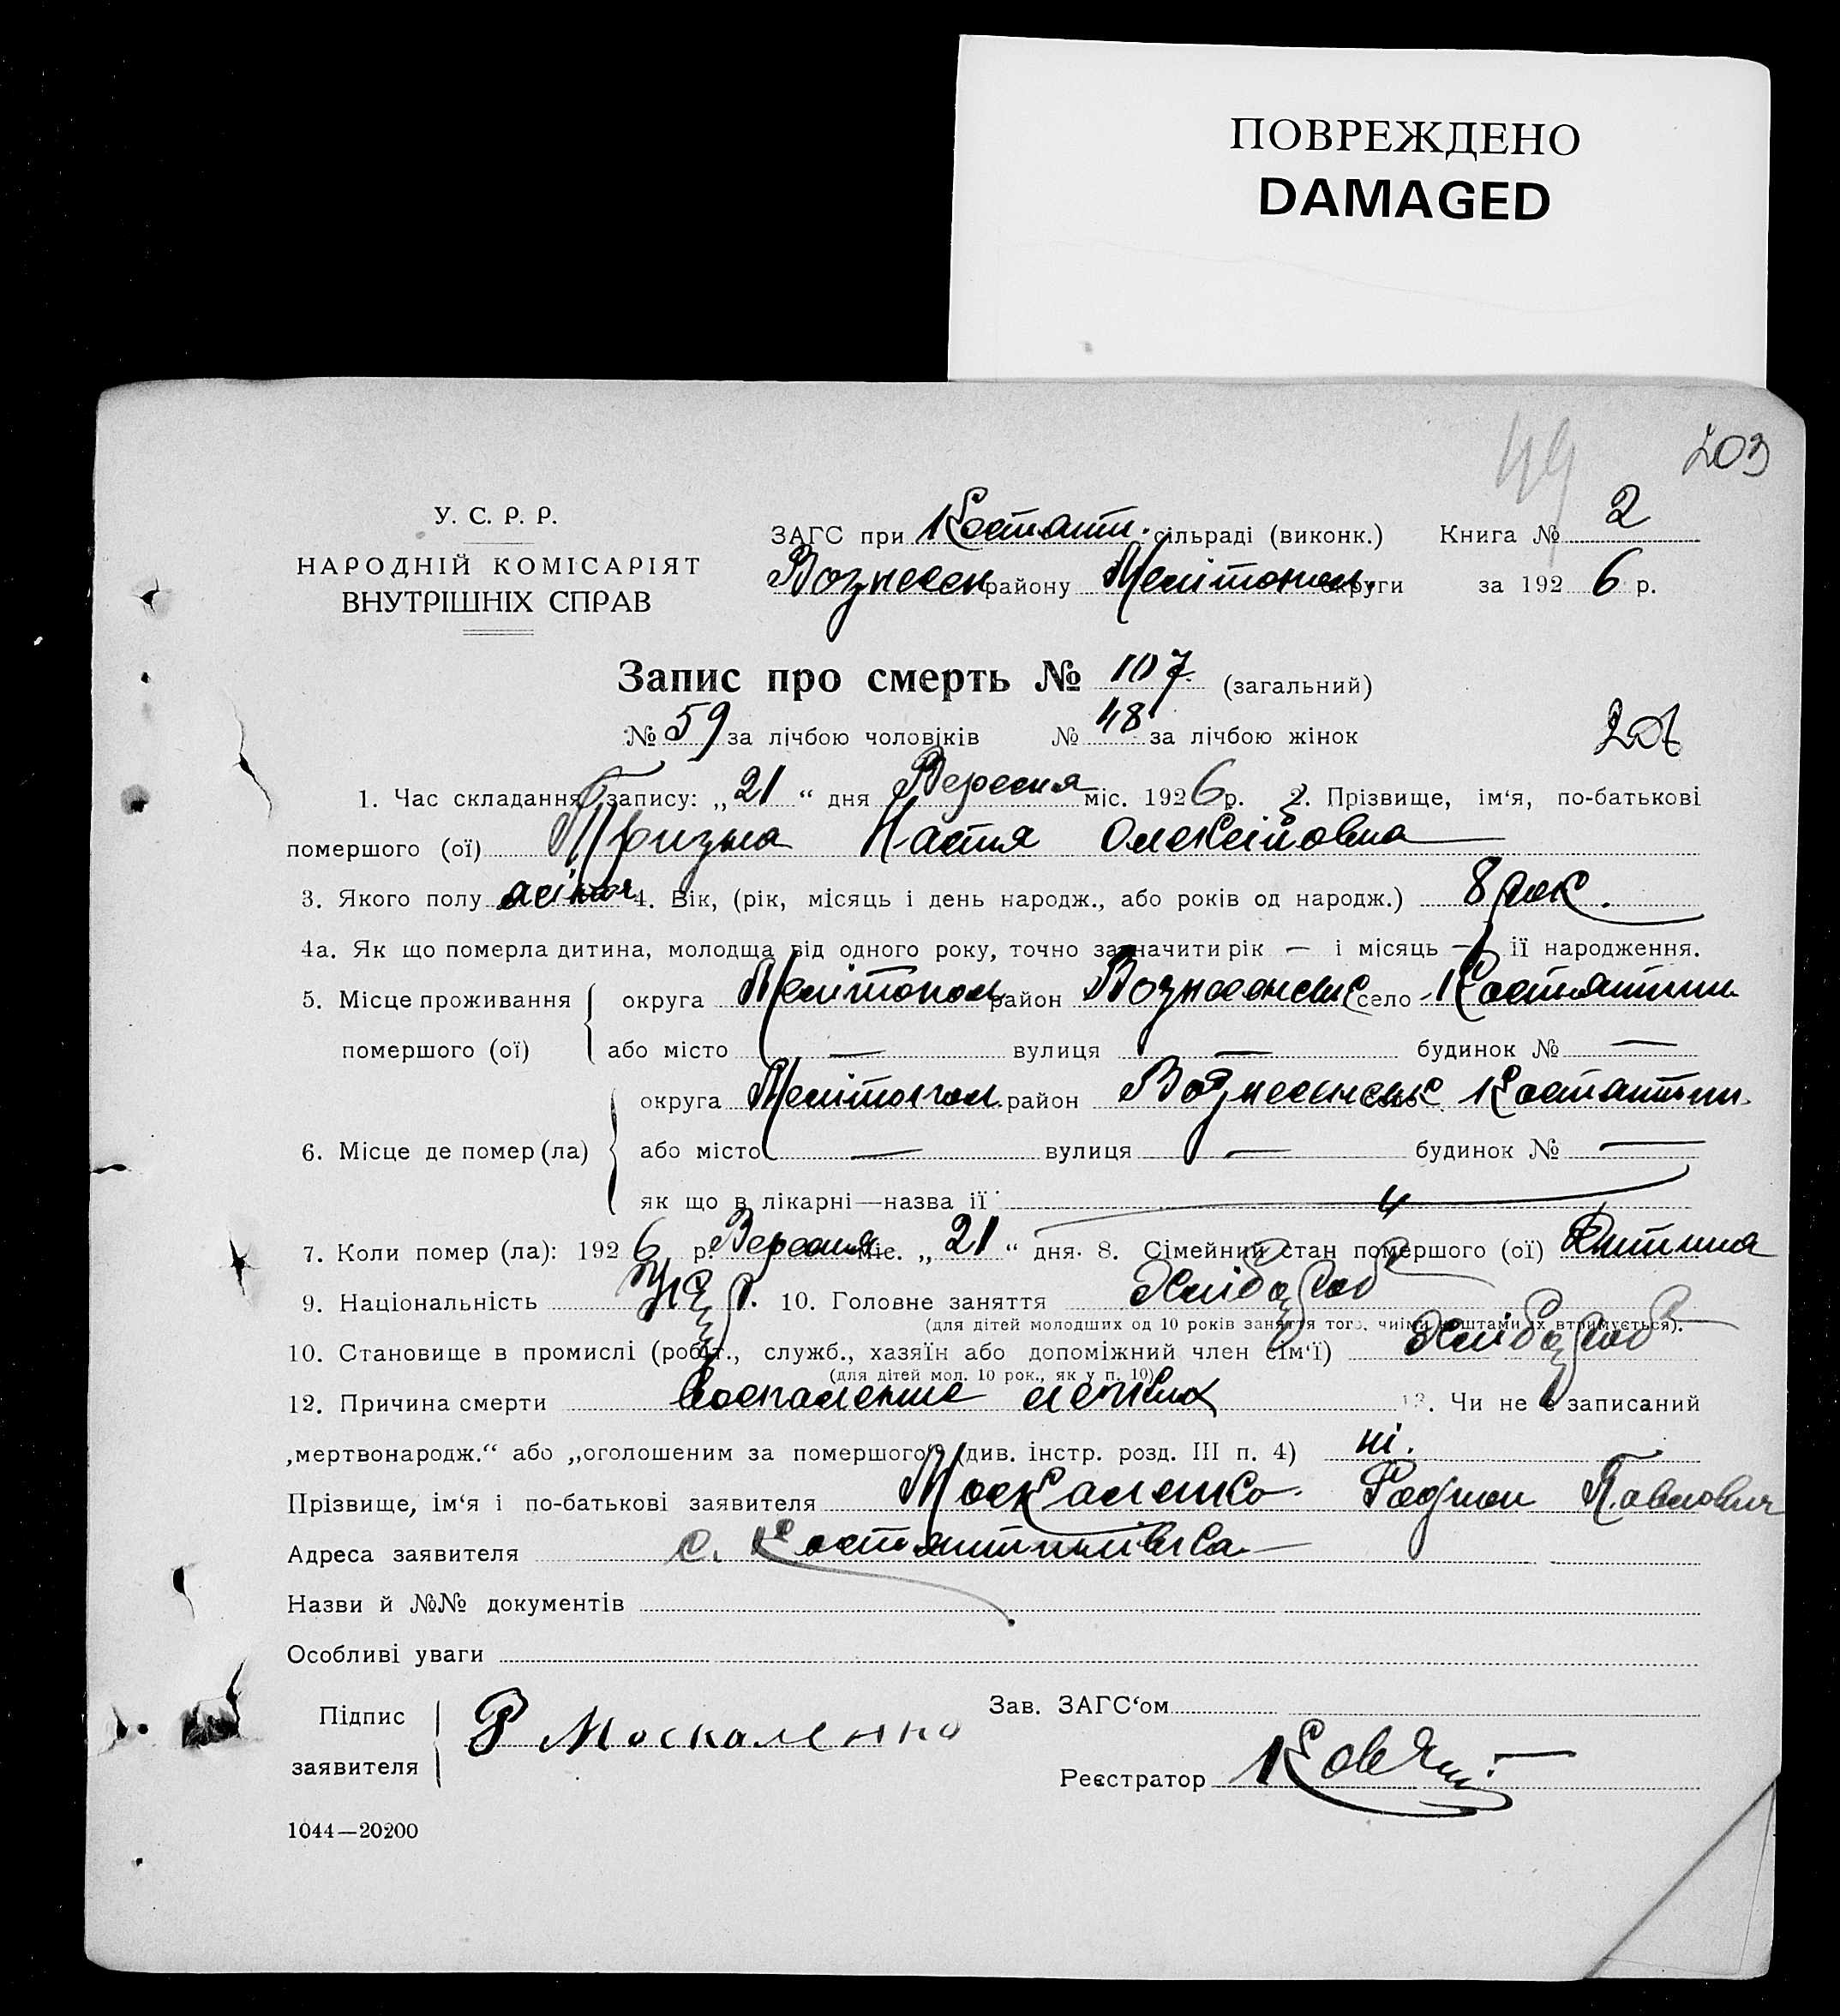 ПОВРЕЖДЕНО
DAMAGED
49
203
У. С. Р. Р.
НАРОДНІЙ КОМІСАРІЯТ
ВНУТРІШНІХ СПРАВ
ЗАГС при Костант. сільраді (виконк.) Книга № 2
Вознесен району Мелітопол. округи за 1926 р.
Запис про смерть № 107 (загальний)
№ 59 за лічбою чоловіків № 48 за лічбою жінок
1. Час складання запису: „21“ дня Вересня міс. 1926 р. 2. Прізвище, ім‘я, по-батькові
помершого (ої) Тризна Настя Олексійовна
3. Якого полу жіноч 4. Вік, (рік, місяць і день народж., або років од народж.) 8 рок.
4а. Як що померла дитина, молодща від одного року, точно зазначити рік — і місяць — її народження.
5. Місце проживання помершого (ої) округа Мелітопол. район Вознесенськ село Костянтин.
або місто — вулиця — будинок № —
6. Місце де помер (ла) округа Мелітопол. район Вознесенськ село Костантин.
або місто — вулиця — будинок № —
як що в лікарні—назва її
7. Коли помер (ла): 1926 р. Вересня міс. „21“ дня. 8. Сімейний стан помершого (ої) Дитина
9. Національність Укр. 10. Головне заняття Хлібороб
(для дітей молодших од 10 років заняття того, чиїми коштами їх втримується).
10. Становище в промислі (робіт., служб., хазяїн або допоміжний член сім‘ї) Хлібороб
(для дітей мол. 10 рок., як у п. 10)
12. Причина смерти Воспаление легких 13. Чи не є записаний
„мертвонародж.“ або „оголошеним за помершого“ (див. інстр. розд. III п. 4) ні.
Прізвище, ім‘я і по-батькові заявителя Москаленко Родион Павлович
Адреса заявителя с. Костянтинівка
Назви й №№ документів
Особливі уваги
Підпис заявителя Р Москаленко
Зав. ЗАГС‘ом
Реєстратор
1044—20200